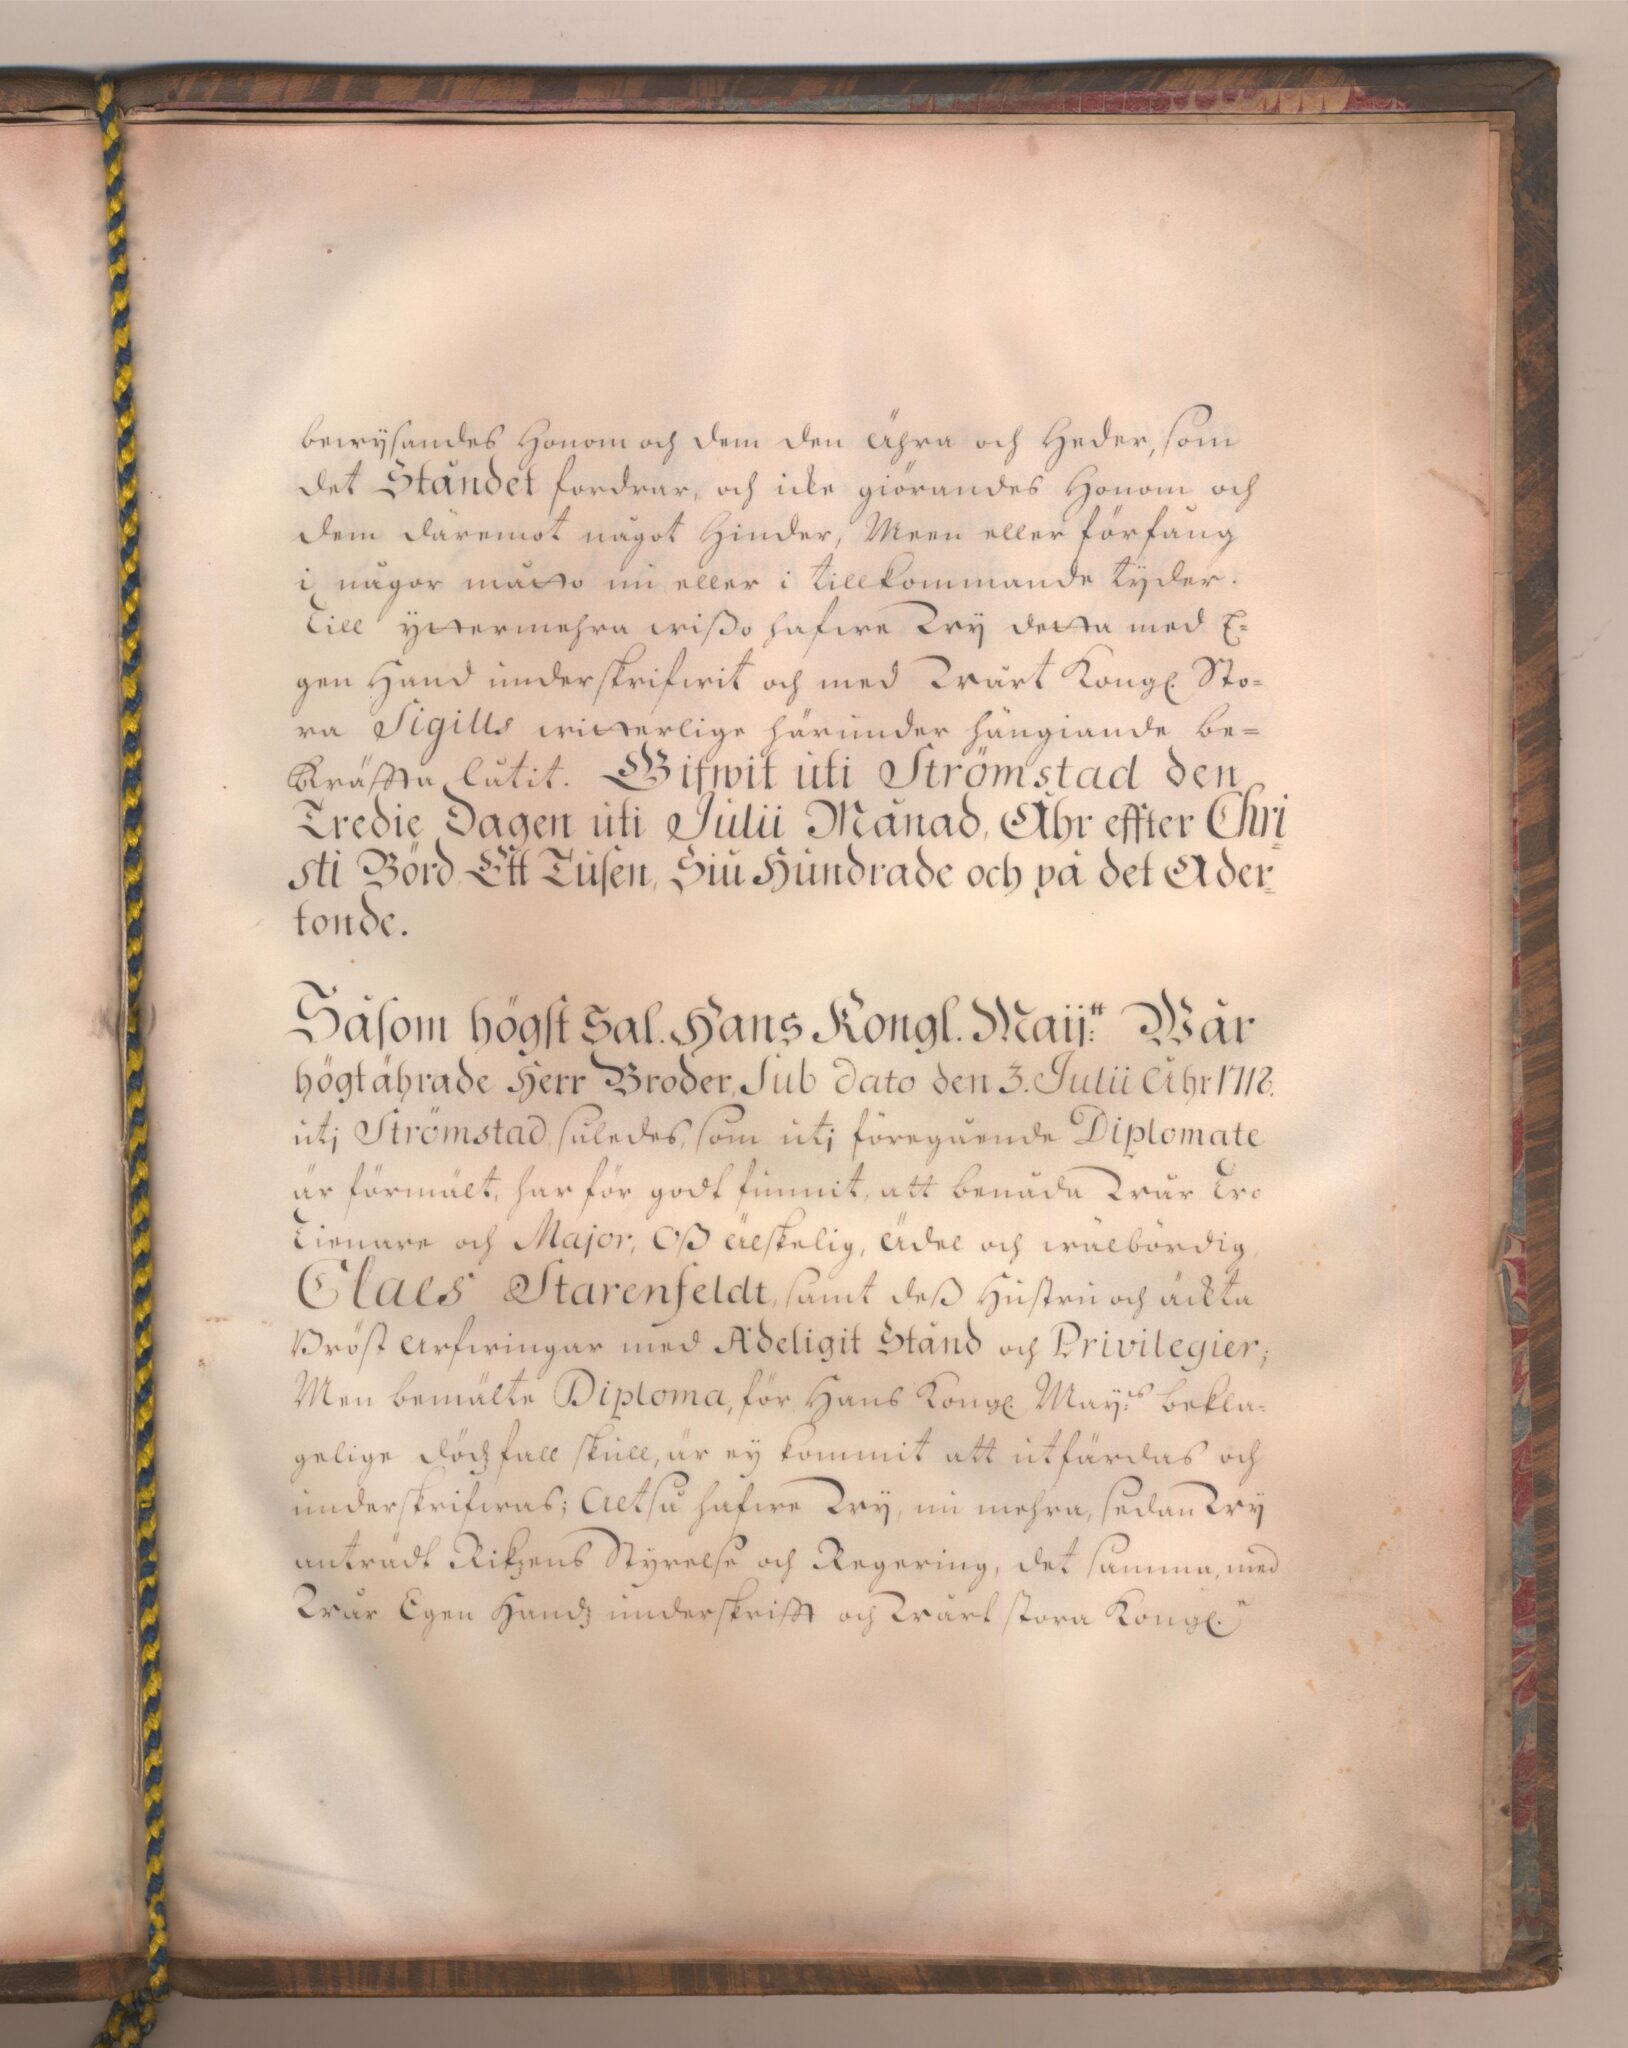 bewÿsandes Honom och dem den Ähra och Heder, som
det Ståndet fordrar, och icke giörandes Honom och
dem däremot något Hinder, Meen eller förfång
i någor måtto nu eller i tillkommande tÿder.
Till ÿttermehra wißo hafwe Wÿ detta med E-
gen Hand underskrifwit och med Wårt Kongl. Sto-
ra Sigills witterlige härunder hängiande be-
kräffta låtit. Gifwit uti Strömstad den
Tredie Dagen uti Julii Månad, Åhr effter Chri-
sti Börd Ett Tusen, Siu Hundrade och på det Ader-
tonde.
Såsom högst Sal. Hans Kongl. Maij:tt Wår
högtährade Herr Broder, Sub dato den 3. Julii Åhr 1718.
utj Strömstad, således, som utj föregående Diplomate
är förmält, har för godt funnit, att benåda Wår Tro
Tienare och Major, Oß älskelig, Ädel och wälbördig,
Claes Starenfeldt, samt deß Hustru och äckta
Bröst Arfwingar med Adeligit Stånd och Privilegier;
Men bemälte Diploma, för Hans Kongl. Maÿ:ts bekla-
gelige dödzfall skull, är eÿ kommit att utfärdas och
underskrifwas; Altså hafwe Wÿ, nu mehra, sedan Wÿ
anträdt Rikzens Styrelse och Regering, det samma, med
Wår Egen Handz underskrifft och Wårt stora Kongl.